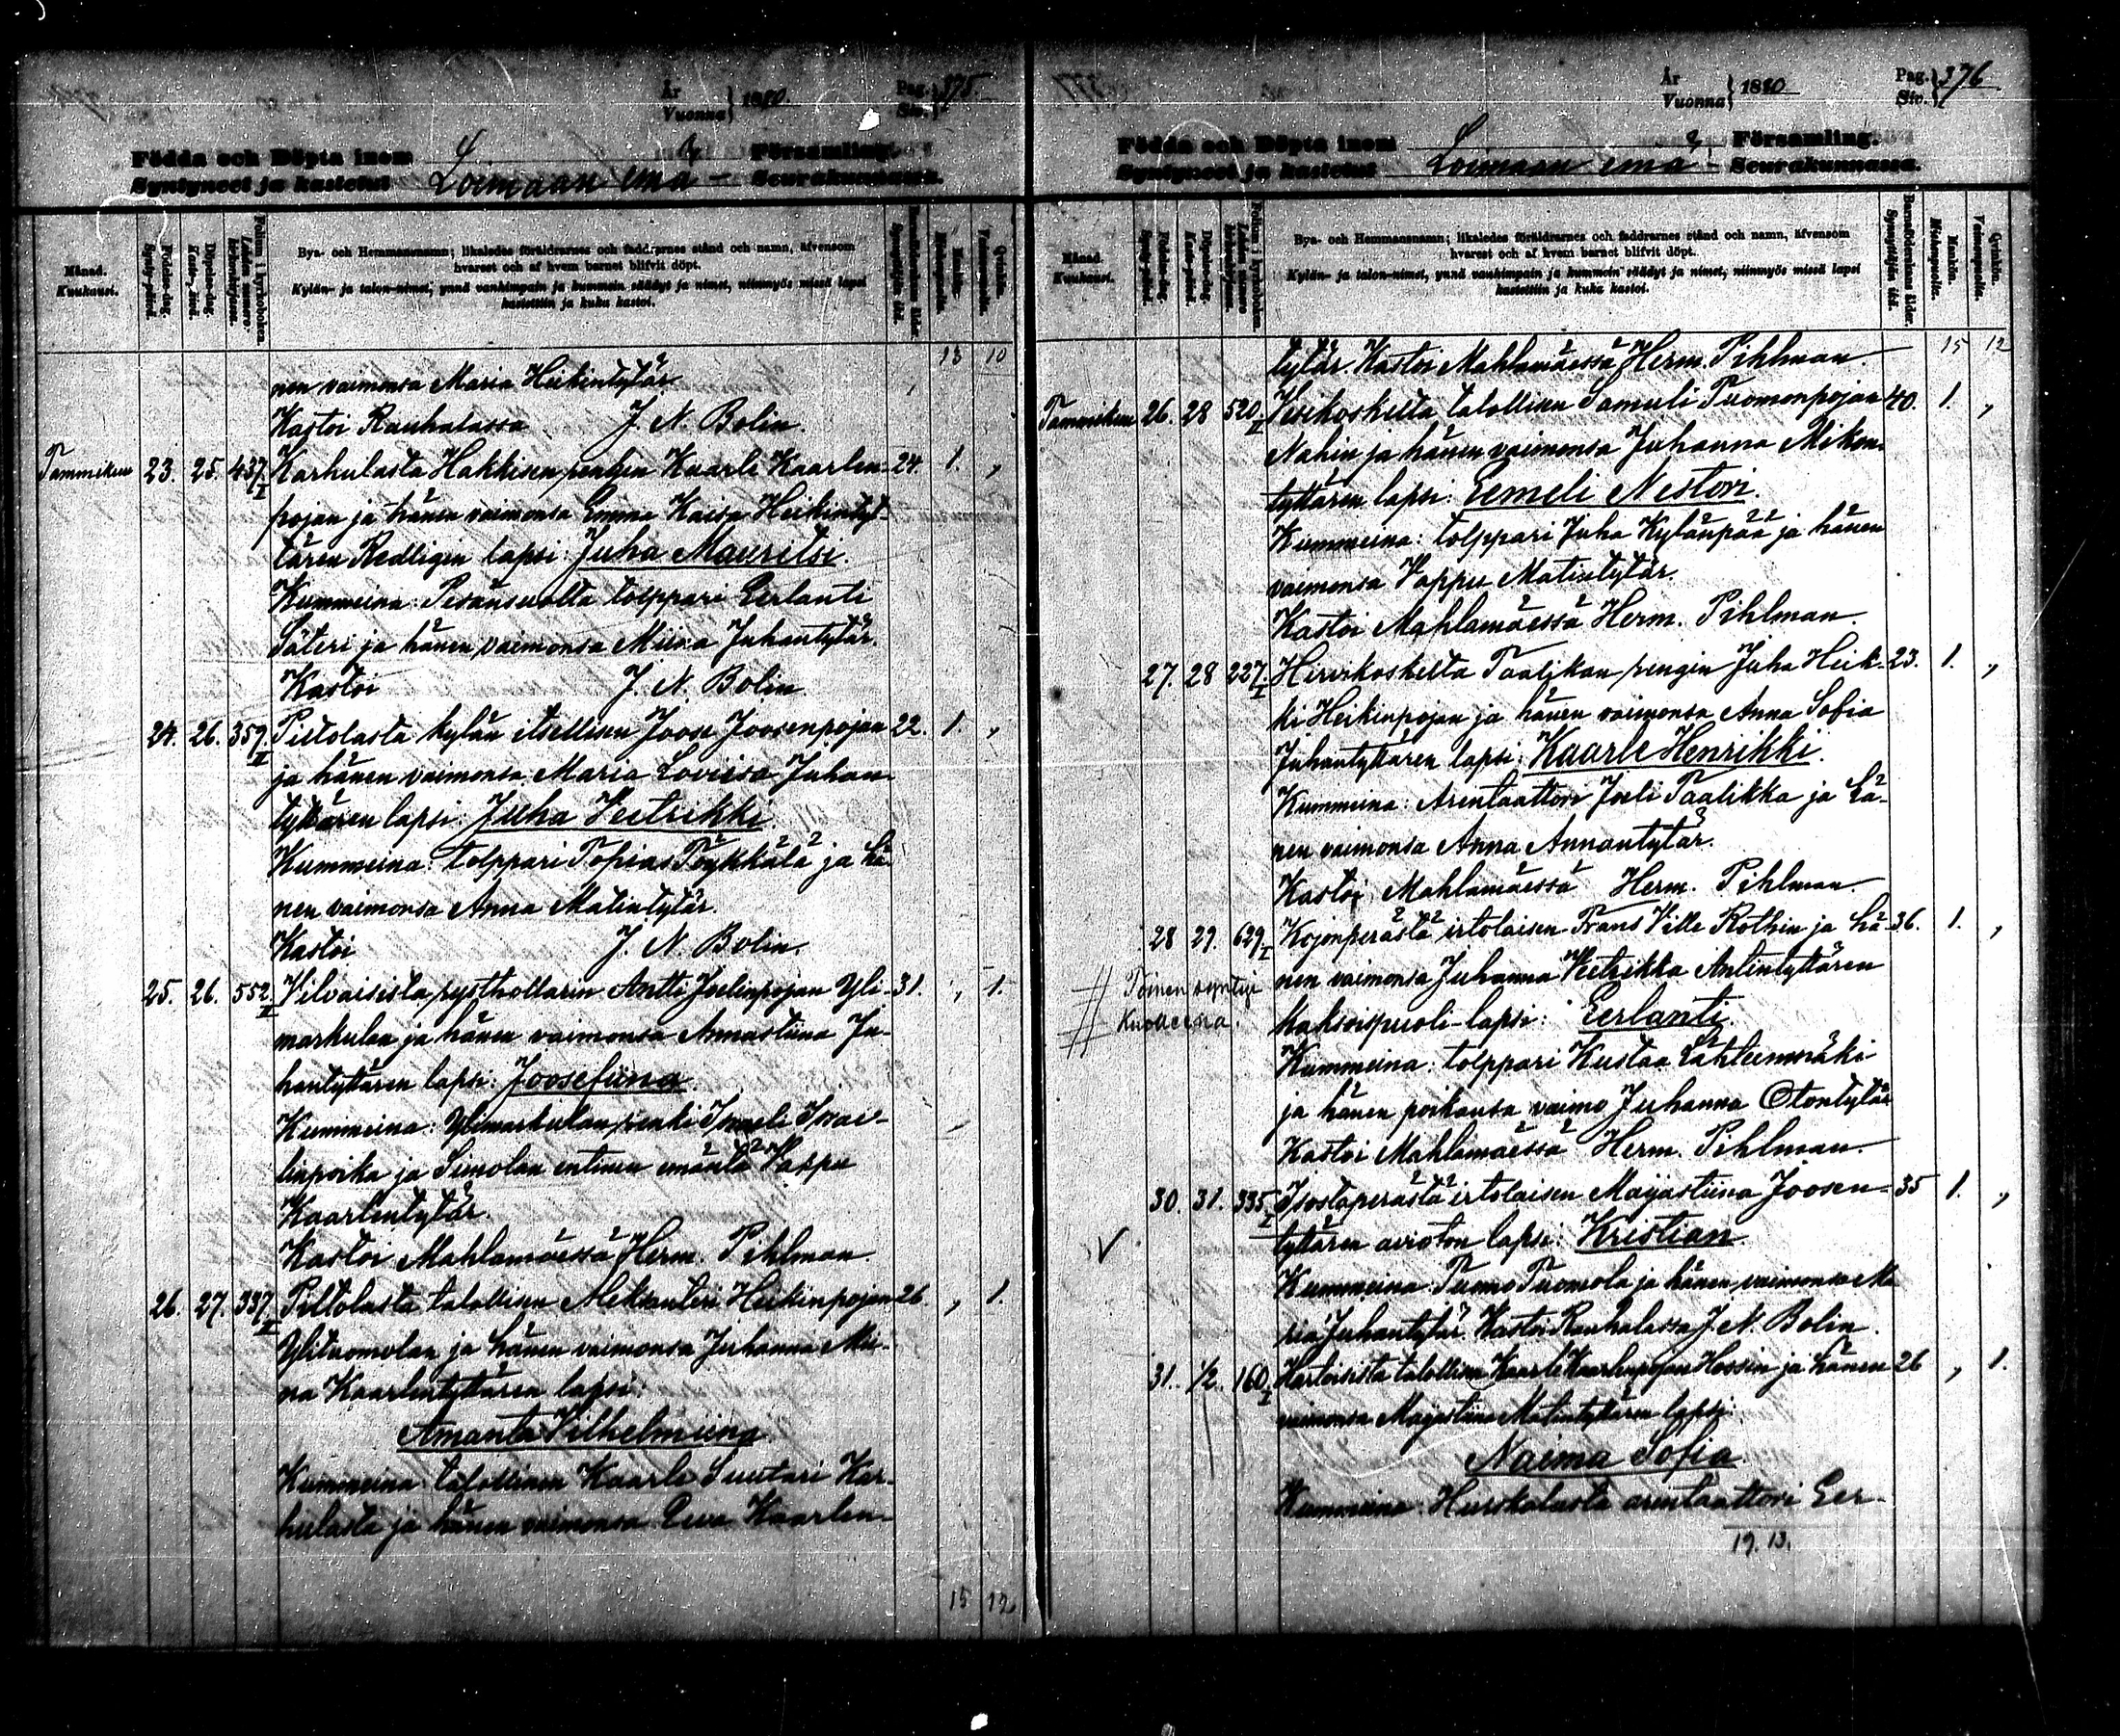 År
Vuonna } 1890. Pag. Siv. } 375.
Födda och Döpta inom Församling.
Syntyneet ja kastetut Loimaan emä- Seurakunnassa.
Månad. Kuukausi.
Födelse-dag. Synty-päivä.
Döpelse-dag. Kaste-päivä.
Folium i kyrkoboken. Lehden numero kirkonkirjassa.
Bya- och Hemmansnamn; likaledes föräldrarnes och faddrarnes stånd och namn, äfvensom
hvarest och af hvem barnet blifvit döpt.
Kylän- ja talon-nimet, ynnä vanhimpain ja kummein säädyt ja nimet, niinmyös missä lapsi
kastettiin ja kuka kastoi.
Barnaföderskans ålder. Synnyttäjän ikä.
Mankön. Miehenpuolia.
Qvinkön. Vaimonpuolia.
13 10
nen vaimonsa Maria Heikintytär
Kastoi Rauhalassa J. N. Bolin.
Tammikuu 23. 25. 437. I Karhulasta Hakkisen rengin Kaarle Kaarlen- 24. 1. „
pojan ja hänen vaimonsa Emma Kaisa Heikintyt-
tären Redligin lapsi: Juha Mauritsi.
Kummeina: Pesänsuolta torppari Eerlanti
Säteri ja hänen vaimonsa Miina Juhantytär.
Kastoi J. N. Bolin
24. 26. 359. II Peltolasta kylän itsellisen Joose Joosenpojan 22. 1. „
ja hänen vaimonsa Maria Loviisa Juhan-
tyttären lapsi: Juha Vetrikki
Kummeina: torppari Topias Töykkälä ja hä-
nen vaimonsa Anna Matintytär.
Kastoi J. N. Bolin.
25. 26. 552. II Vilvaisista pysthollarin Antti Joelinpojan Yli- 31. „ 1.
markulan ja hänen vaimonsa Annastiina Ju-
hantyttären lapsi: Joosefiina
Kummeina: Ylimarkulan renki Israeli Israe-
linpoika ja Simolan entinen emäntä Vappu
Kaarlentytär.
Kastoi Mahlamäessä Herm. Pihlman
26. 27. 337. II Peltolasta talollisen Aleksanteri Heikinpojan 26. „ 1.
Ylituomolan ja hänen vaimonsa Juhanna Mii-
na Kaarlentyttären lapsi:
Amanta Vilhelmiina
Kummeina: talollinen Kaarle Suutari Kar-
hulasta ja hänen vaimonsa Eeva Kaarlen-
15 12
År
Vuonna } 1890 Pag. Siv. } 376
Födda och Döpta inom Församling.
Syntyneet ja kastetut Loimaan emä- Seurakunnassa.
Månad. Kuukausi.
Födelse-dag. Synty-päivä.
Döpelse-dag. Kaste-päivä.
Folium i kyrkoboken. Lehden numero kirkonkirjassa.
Bya- och Hemmansnamn; likaledes föräldrarnes och faddrarnes stånd och namn, äfvensom
hvarest och af hvem barnet blifvit döpt.
Kylän- ja talon-nimet, ynnä vanhimpain ja kummein säädyt ja nimet, niinmyös missä lapsi
kastettiin ja kuka kastoi.
Barnaföderskans ålder. Synnyttäjän ikä.
Mankön. Miehenpuolia.
Qvinkön. Vaimonpuolia.
15 12
tytär. Kastoi Mahlamäessä Herm. Pihlman
Tammikuu 26. 28 520. II Vesikoskelta talollisen Samuli Tuomonpojan 40. 1. „
Nahin ja hänen vaimonsa Juhanna Mikon-
tyttären lapsi: Eemeli Nestori.
Kummeina: torppari Juha Kylänpää ja hänen
vaimonsa Vappu Matintytär.
Kastoi Mahlamäessä Herm. Pihlman
27. 28 227. I Hirvikoskelta Taalikan rengin Juha Heik- 23. 1. „
ki Heikinpojan ja hänen vaimonsa Anna Sofia
Juhantyttären lapsi: Kaarle Henrikki.
Kummeina: Arentaattori Joeli Taalikka ja hä-
nen vaimonsa Anna Annantytär.
Kastoi Mahlamäessä Herm. Pihlman
28 29. 629. I Kojonperästä irtolaisen Frans Ville Rothin ja hä- 36. 1. „
Toinen syntyi nen vaimonsa Juhanna Vetrikka Antintyttären
kuolleena. kaksoispuoli-lapsi: Eerlanti
Kummeina: torppari Kustaa Lähteenmäki
ja hänen poikansa vaimo Juhanna Otontytär
Kastoi Mahlamäessä Herm. Pihlman
30. 31. 335. I Isostaperästä irtolaisen Maijastiina Joosen- 35 1. „
tyttären avioton lapsi: Kristian
Kummeina: Tuomo Tuomola ja hänen vaimonsa Ma
ria Juhantytär. Kastoi Rauhalassa J. N. Bolin.
31. 1/2. 160. I talollisen Kaarle Kaarlenpojan Hossin ja hänen 26 „ 1.
vaimonsa Maijastiina Matintyttären lapsi:
Naima Sofia
Kummeina: Hurskalasta arentaattori Eer-
19. 13.